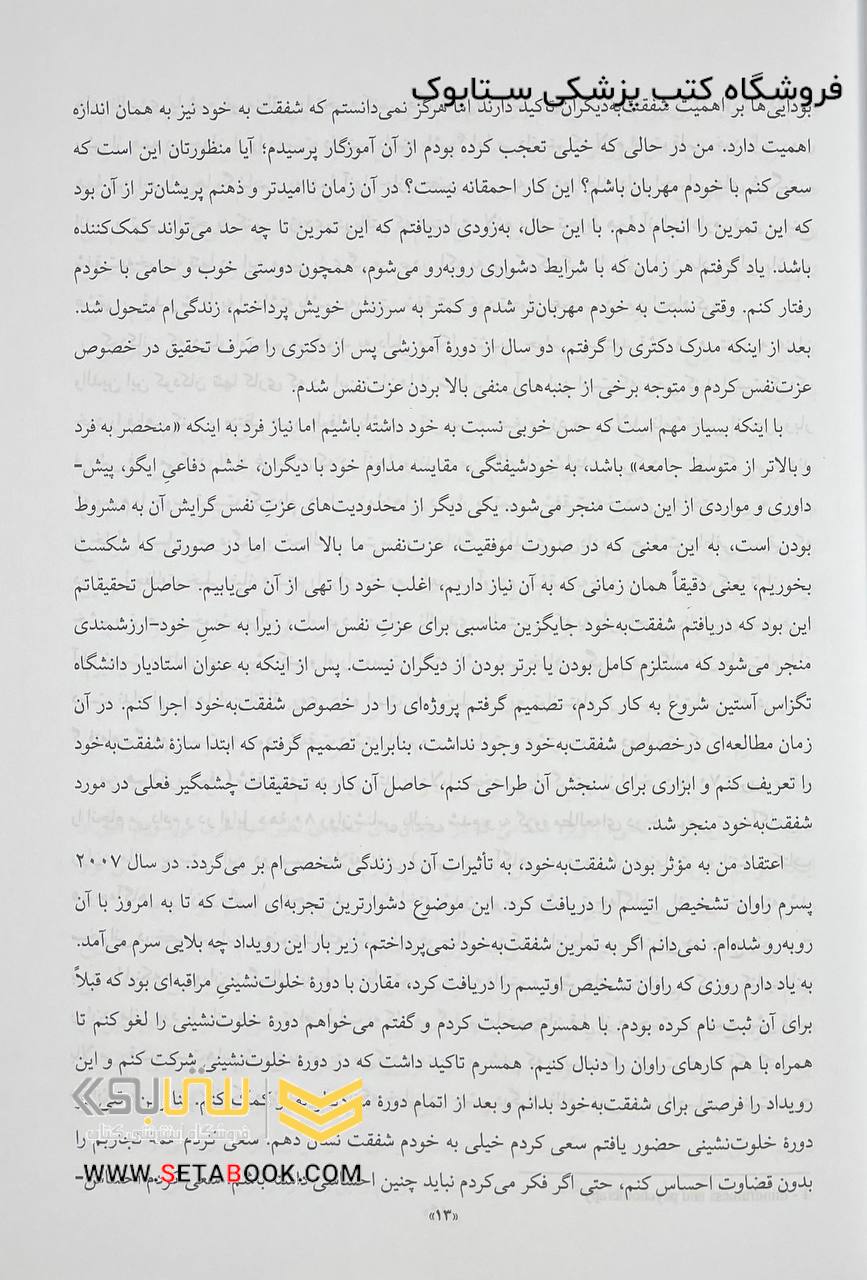 فروشگاه کتب پزشکی ستابوک
بودایی‌ها بر اهمیت شفقت‌به‌دیگران تاکید دارند اما هرگز نمی‌دانستم که شفقت به خود نیز به همان اندازه
اهمیت دارد. من در حالی که خیلی تعجب کرده بودم از آن آموزگار پرسیدم؛ آیا منظورتان این است که
سعی کنم با خودم مهربان باشم؟ این کار احمقانه نیست؟ در آن زمان ناامیدتر و ذهنم پریشان‌تر از آن بود
که این تمرین را انجام دهم. با این حال، به‌زودی دریافتم که این تمرین تا چه حد می‌تواند کمک‌کننده
باشد. یاد گرفتم هر زمان که با شرایط دشواری روبه‌رو می‌شوم، همچون دوستی خوب و حامی با خودم
رفتار کنم. وقتی نسبت به خودم مهربان‌تر شدم و کمتر به سرزنش خویش پرداختم، زندگی‌ام متحول شد.
بعد از اینکه مدرک دکتری را گرفتم، دو سال از دورهٔ آموزشی پس از دکتری را صَرف تحقیق در خصوص
عزت‌نفس کردم و متوجه برخی از جنبه‌های منفی بالا بردن عزت‌نفس شدم.
با اینکه بسیار مهم است که حس خوبی نسبت به خود داشته باشیم اما نیاز فرد به اینکه «منحصر به فرد
و بالاتر از متوسط جامعه» باشد، به خودشیفتگی، مقایسه مداوم خود با دیگران، خشم دفاعیِ ایگو، پیش-
داوری و مواردی از این دست منجر می‌شود. یکی دیگر از محدودیت‌های عزتِ نفس گرایش آن به مشروط
بودن است، به این معنی که در صورت موفقیت، عزت‌نفس ما بالا است اما در صورتی که شکست
بخوریم، یعنی دقیقاً همان زمانی که به آن نیاز داریم، اغلب خود را تهی از آن می‌یابیم. حاصل تحقیقاتم
این بود که دریافتم شفقت‌به‌خود جایگزین مناسبی برای عزتِ نفس است، زیرا به حسِ خود-ارزشمندی
منجر می‌شود که مستلزم کامل بودن یا برتر بودن از دیگران نیست. پس از اینکه به عنوان استادیار دانشگاه
تگزاس آستین شروع به کار کردم، تصمیم گرفتم پروژه‌ای را در خصوص شفقت‌به‌خود اجرا کنم. در آن
زمان مطالعه‌ای درخصوص شفقت‌به‌خود وجود نداشت، بنابراین تصمیم گرفتم که ابتدا سازهٔ شفقت‌به‌خود
را تعریف کنم و ابزاری برای سنجش آن طراحی کنم، حاصل آن کار به تحقیقات چشمگیر فعلی در مورد
شفقت‌به‌خود منجر شد.
اعتقاد من به مؤثر بودن شفقت‌به‌خود، به تأثیرات آن در زندگی شخصی‌ام بر می‌گردد. در سال ۲۰۰۷
پسرم راوان تشخیص اتیسم را دریافت کرد. این موضوع دشوارترین تجربه‌ای است که تا به امروز با آن
روبه‌رو شده‌ام. نمی‌دانم اگر به تمرین شفقت‌به‌خود نمی‌پرداختم، زیر بار این رویداد چه بلایی سرم می‌آمد.
به یاد دارم روزی که راوان تشخیص اوتیسم را دریافت کرد، مقارن با دورهٔ خلوت‌نشینیِ مراقبه‌ای بود که قبلاً
برای آن ثبت نام کرده بودم. با همسرم صحبت کردم و گفتم می‌خواهم دورهٔ خلوت‌نشینی را لغو کنم تا
همراه با هم کارهای راوان را دنبال کنیم. همسرم تاکید داشت که در دورهٔ خلوت‌نشینی شرکت کنم و این
رویداد را فرصتی برای شفقت‌به‌خود بدانم و بعد از اتمام دورهٔ کمک کنم.
دورهٔ خلوت‌نشینی حضور یافتم سعی کردم خیلی به خودم شفقت نشان دهم. سعی کردم را
بدون قضاوت احساس کنم، حتی اگر فکر می‌کردم نباید چنین احساسی داشته باشم. سعی کردم احساس-
ستابوک
فروشگاه اینترنتی کتاب
WWW.SETABOOK.COM
«۱۳»